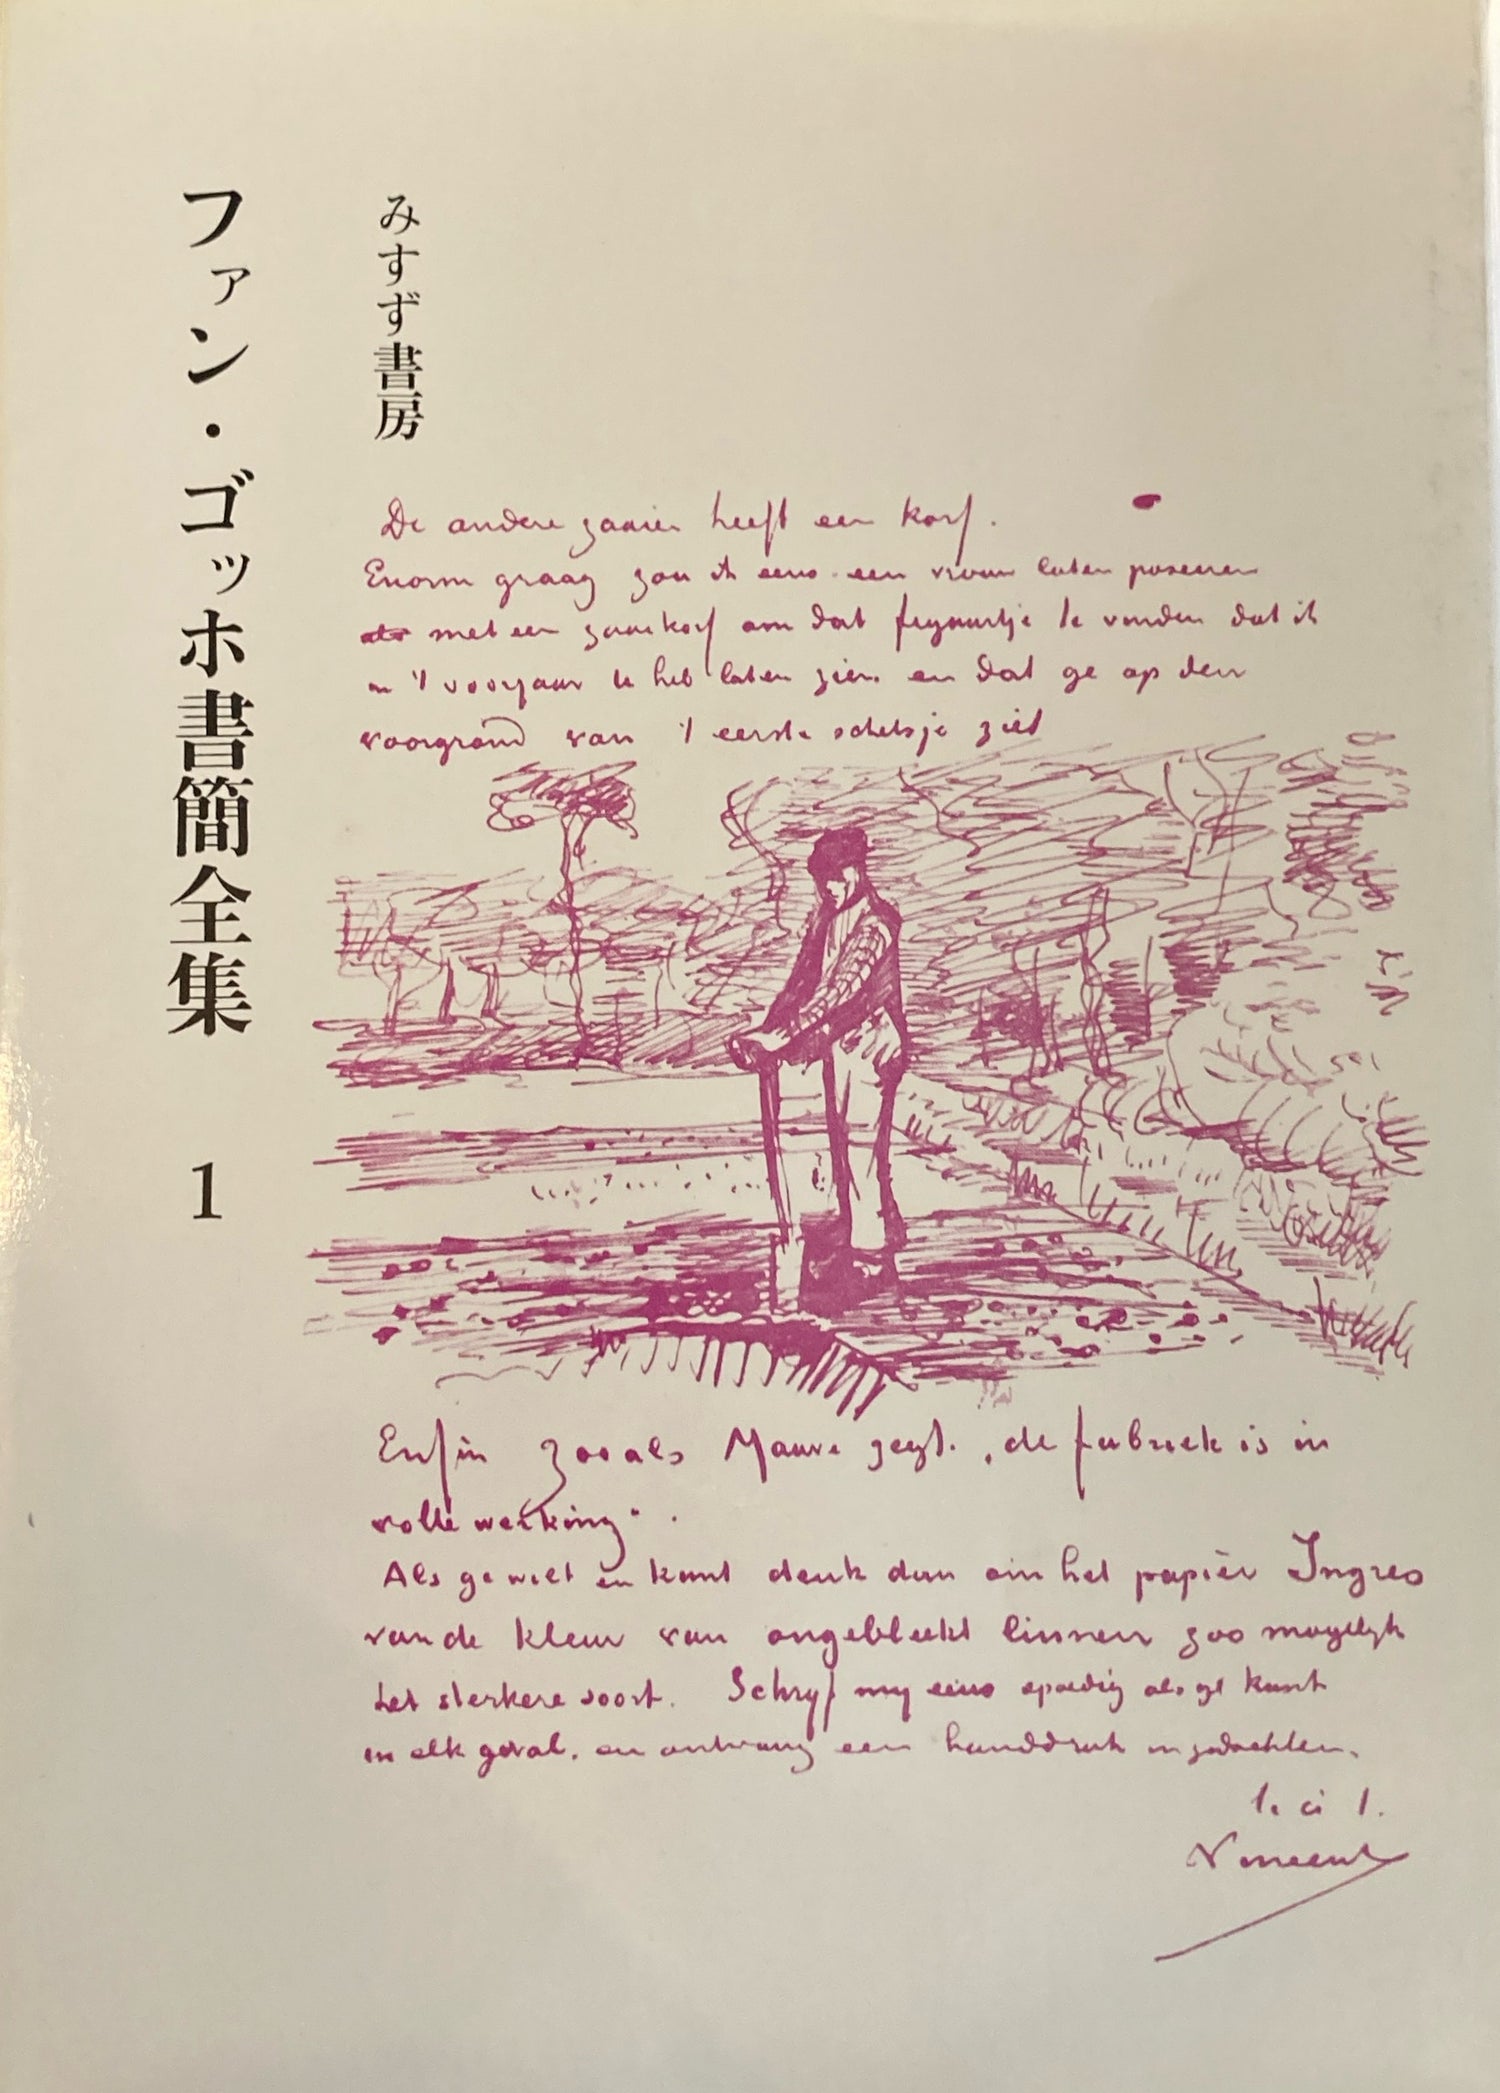 みすず書房
ファン・ゴッホ書簡全集 1
De andere zaaier heeft een korf.
Enorm graag zou ik eens een vrouw laten poseeren
met een zaaikorf om dat figuurtje te vinden dat ik
in 't voorjaar U heb laten zien en dat ge op den
voorgrond van 't eerste schetsje ziet
Enfin zooals Mauve zegt, „de fabriek is in
volle werking".
Als ge wilt en kunt denk dan om het papier Ingres
van de kleur van ongebleekt linnen zoo mogelijk
het sterkere soort. Schryf my eens spoedig als ge kunt
in elk geval, en ontvang een handdruk in gedachten,
t. à t.
Vincent